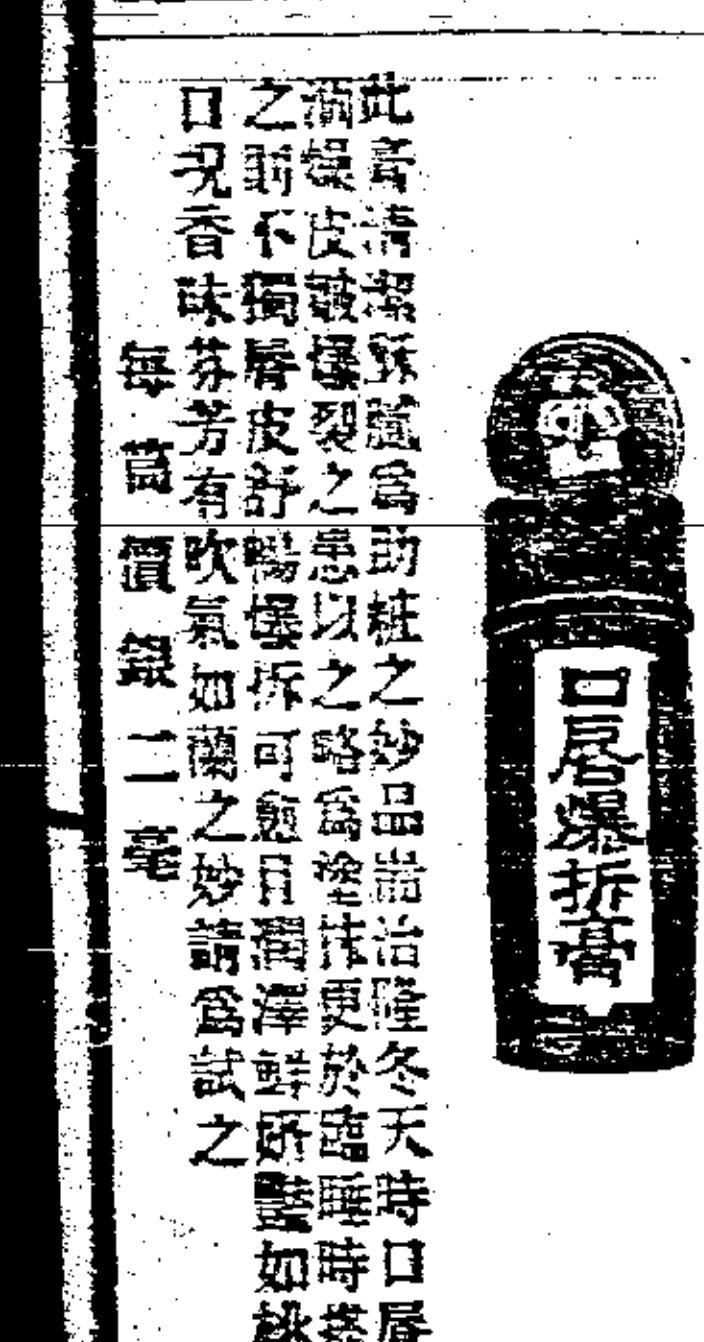 口唇爆拆膏
此膏清潔酥膩爲助粧之妙品耑治隆冬天時口唇
涸燥皮皺爆裂之患以之略爲塗抹更於臨睡時搽
之則不獨唇皮舒暢爆拆可愈且潤澤鮮妍艷如桃
口况香味芬芳有吹氣如蘭之妙請爲試之
每筒價銀二毫